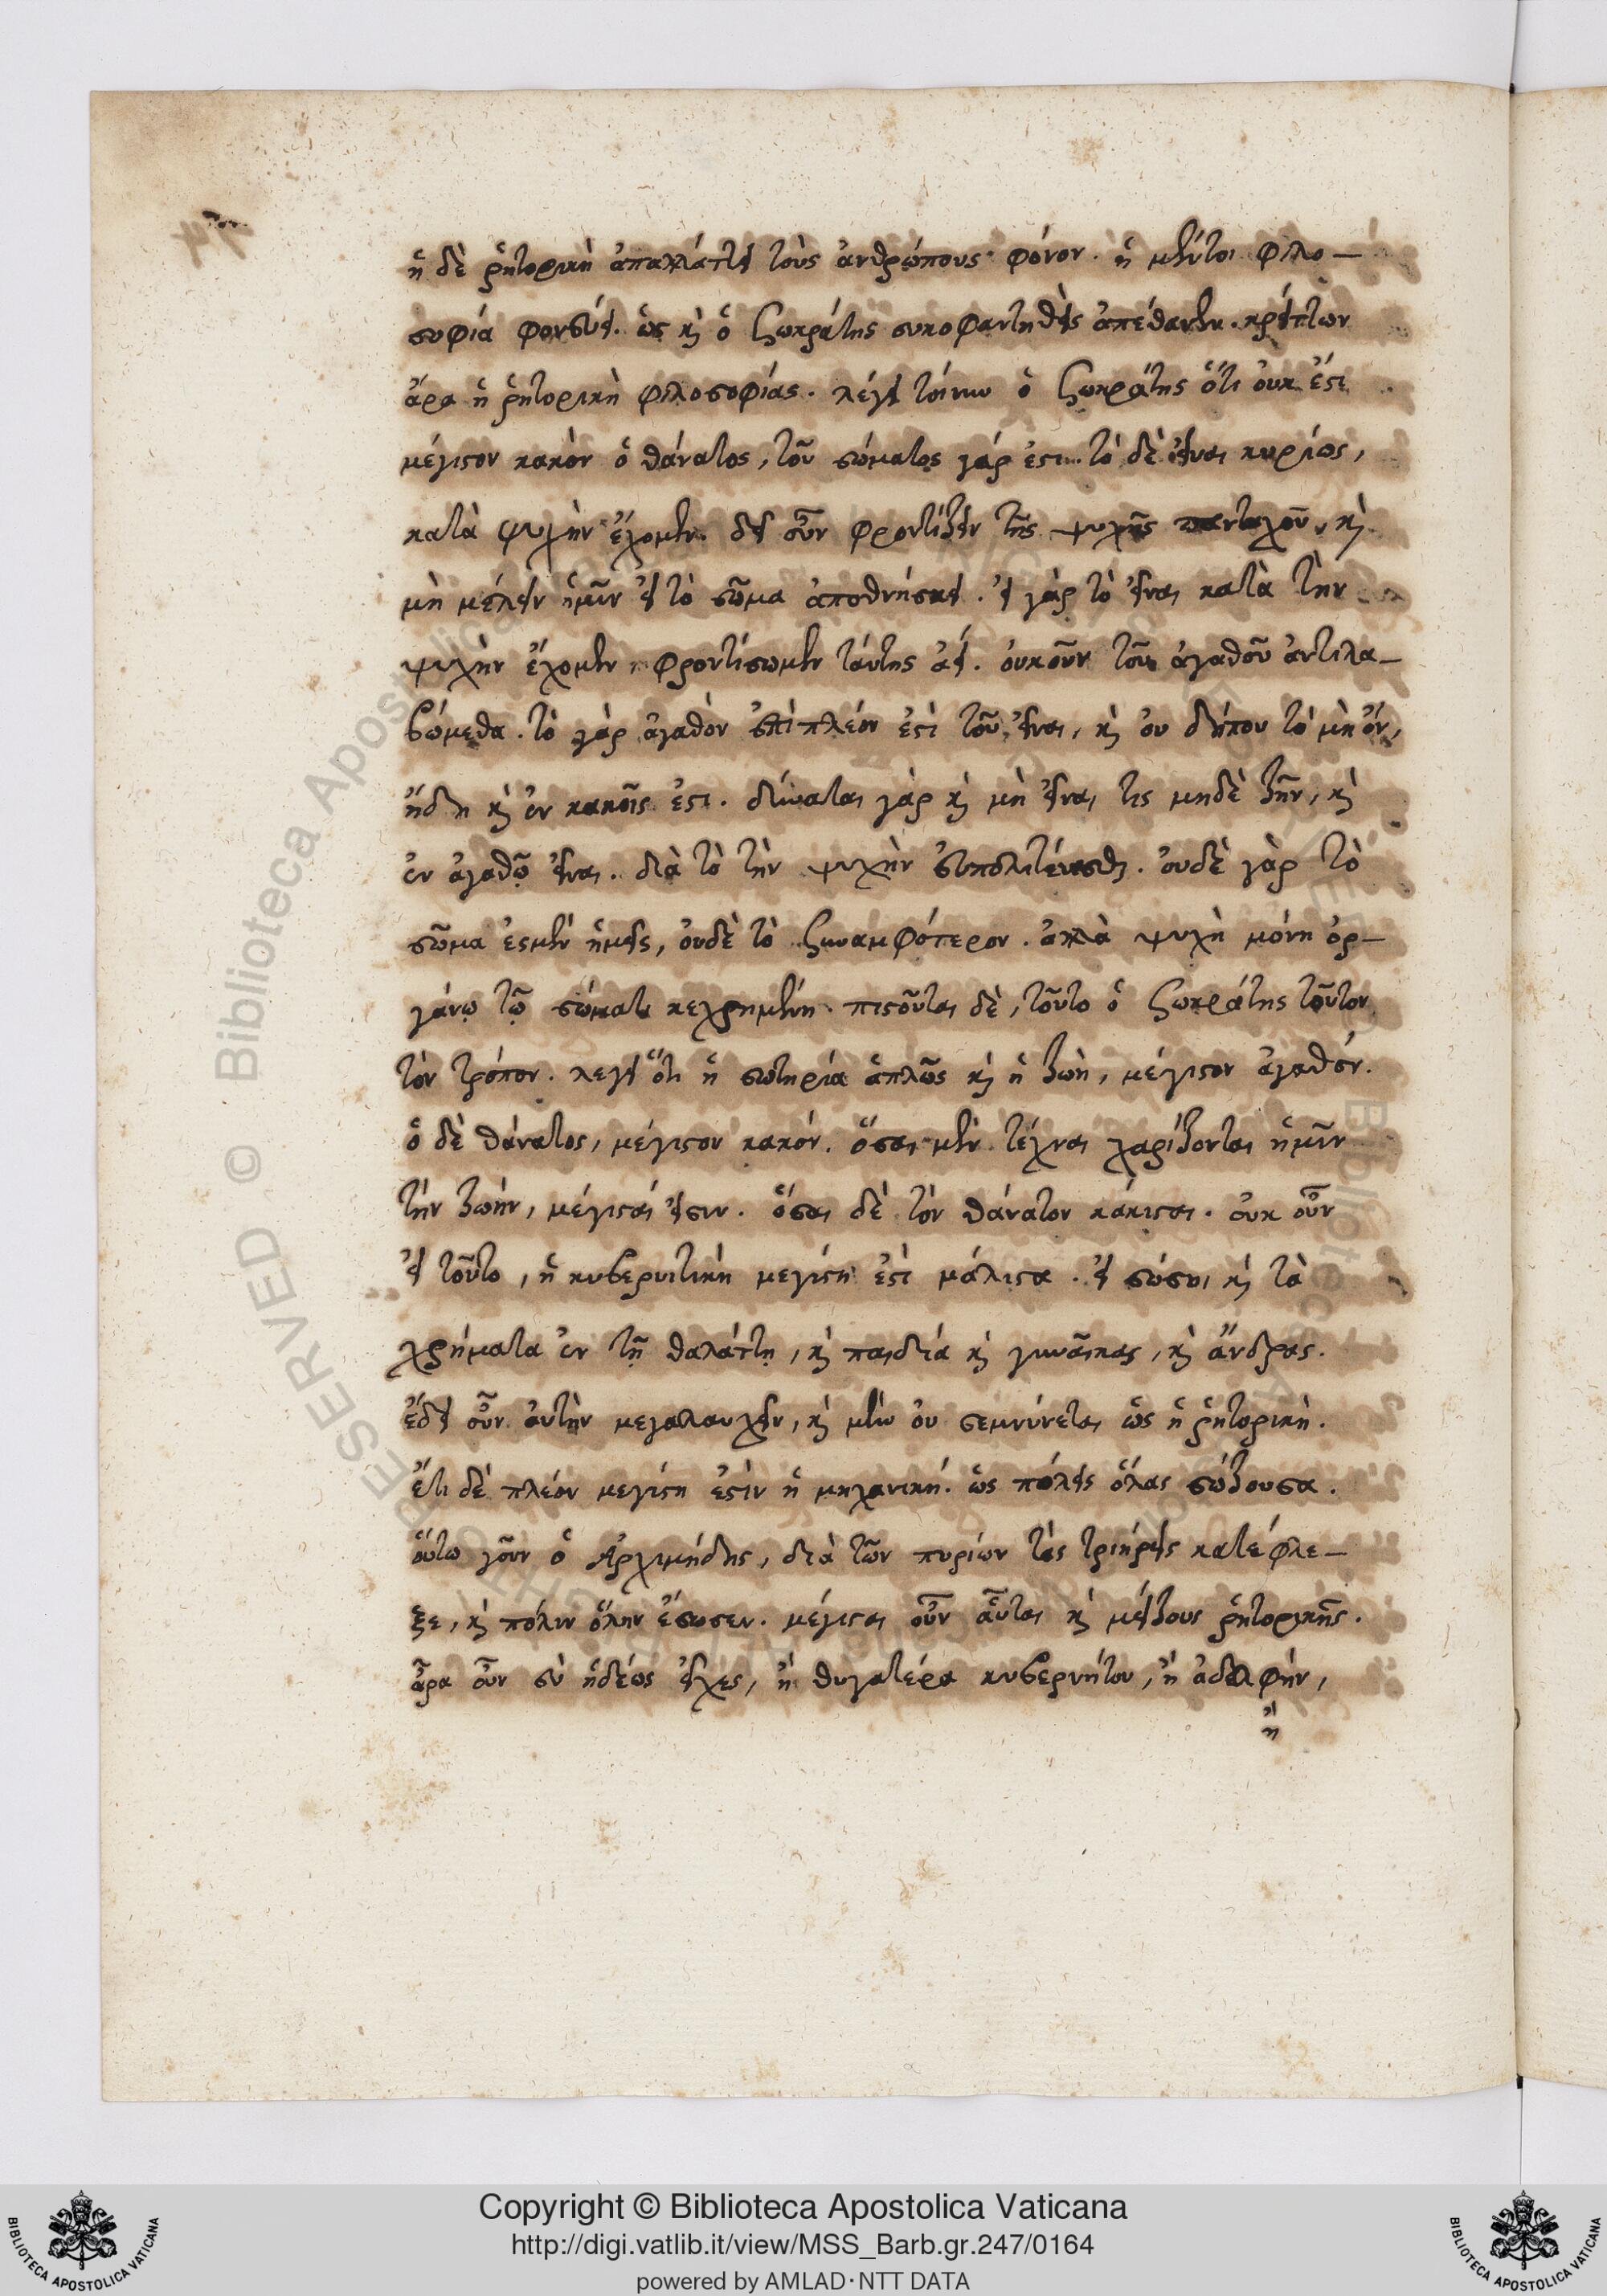 ἡ δὲ ῥητορικὴ ἀπαλλάττει τοὺς ἀνθρώπους φόνον. ἡ μέντοι φιλο–
σοφία φονεύει. ὡς καὶ ὁ Σωκράτης συκοφαντηθεὶς ἀπέθανεν. κρείττων
ἄρα ἡ ῥητορικὴ φιλοσοφίας. λέγει τοίνυν ὁ Σωκράτης ὅτι οὐκ ἔστι
μέγιστον κακὸν ὁ θάνατος, τοῦ σώματος γάρ ἐστι. τὸ δὲ εἶναι κυρίως,
κατὰ ψυχὴν ἔχομεν. δεῖ οὖν φροντίζειν τῆς ψυχῆς πανταχοῦ, καὶ
μὴ μέλειν ἡμῖν εἰ τὸ σῶμα ἀποθνήσκει. εἰ γὰρ τὸ εἶναι κατὰ τὴν
ψυχὴν ἔχομεν, φροντίσωμεν ταύτης ἀεί. οὐκοῦν τοῦ ἀγαθοῦ ἀντιλα–
βώμεθα. τὸ γὰρ ἀγαθὸν ἐπὶ πλέον ἐστὶ τοῦ εἶναι, καὶ οὐ δήπου τὸ μὴ ὄν,
ἤδη καὶ ἐν κακοῖς ἐστι. δύναται γὰρ καὶ μὴ εἶναι τις μηδὲ ζῆν, καὶ
ἐν ἀγαθῷ εἶναι. διὰ τὸ τὴν ψυχὴν εὐπολιτεύεσθαι. οὐδὲ γὰρ τὸ
σῶμα ἐσμὲν ἡμεῖς, οὐδὲ τὸ ξυναμφότερον. ἀλλὰ ψυχὴ μόνη ὀρ–
γάνῳ τῷ σώματι κεχρημένη. πιστοῦται δὲ, τοῦτο ὁ Σωκράτης τοῦτον
τὸν τρόπον. λέγει ὅτι ἡ σωτηρία ἁπλῶς καὶ ἡ ζωὴ, μέγιστον ἀγαθόν.
ὁ δὲ θάνατος, μέγιστον κακόν. ὅσαι μὲν τέχναι χαρίζονται ἡμῖν
τὴν ζωήν, μέγισταί εἰσιν. ὅσαι δὲ τὸν θάνατον κάκισται. οὐκ οὖν
εἰ τοῦτο, ἡ κυβερνιτικὴ μεγίστη ἐστὶ μάλιστα. εἰ σώσοι καὶ τὰ
χρήματα ἐν τῇ θαλάττῃ, καὶ παιδία καὶ γυναῖκας, καὶ ἄνδρας.
ἔδει οὖν αὐτὴν μεγαλαυχεῖν, καὶ μὴν οὐ σεμνύνεται ὡς ἡ ῥητορικὴ.
ἔτι δὲ πλέον μεγίστη ἐστὶν ἡ μηχανική. ὡς πόλεις ὅλας σώζουσα.
οὕτω γοῦν ὁ Ἀρχιμήδης, διὰ τῶν πυρίων τὰς τριήρεις κατέφλε–
ξε, καὶ πόλιν ὅλην ἔσωσεν. μέγισται οὖν αὗται καὶ μείζους ῥητορικῆς.
ἆρα οὖν σὺ ἡδέως εἶχες, ἢ θυγατέρα κυβερνήτου, ἢ ἀδελφήν,
ἢ
RESERVED © Biblioteca Apostolica
Copyright © Biblioteca Apostolica Vaticana
http://digi.vatlib.it/view/MSS_Barb.gr.247/0164
powered by AMLAD·NTT DATA
BIBLIOTECA APOSTOLICA VATICANA
BIBLIOTECA APOSTOLICA VATICANA